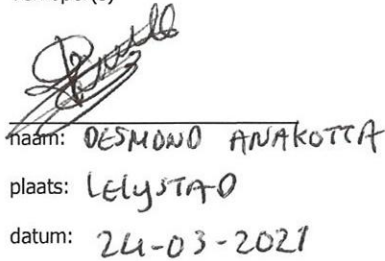 naam: DESMOND ANAKOTTA
plaats: LELYSTAD
datum: 24-03-2021